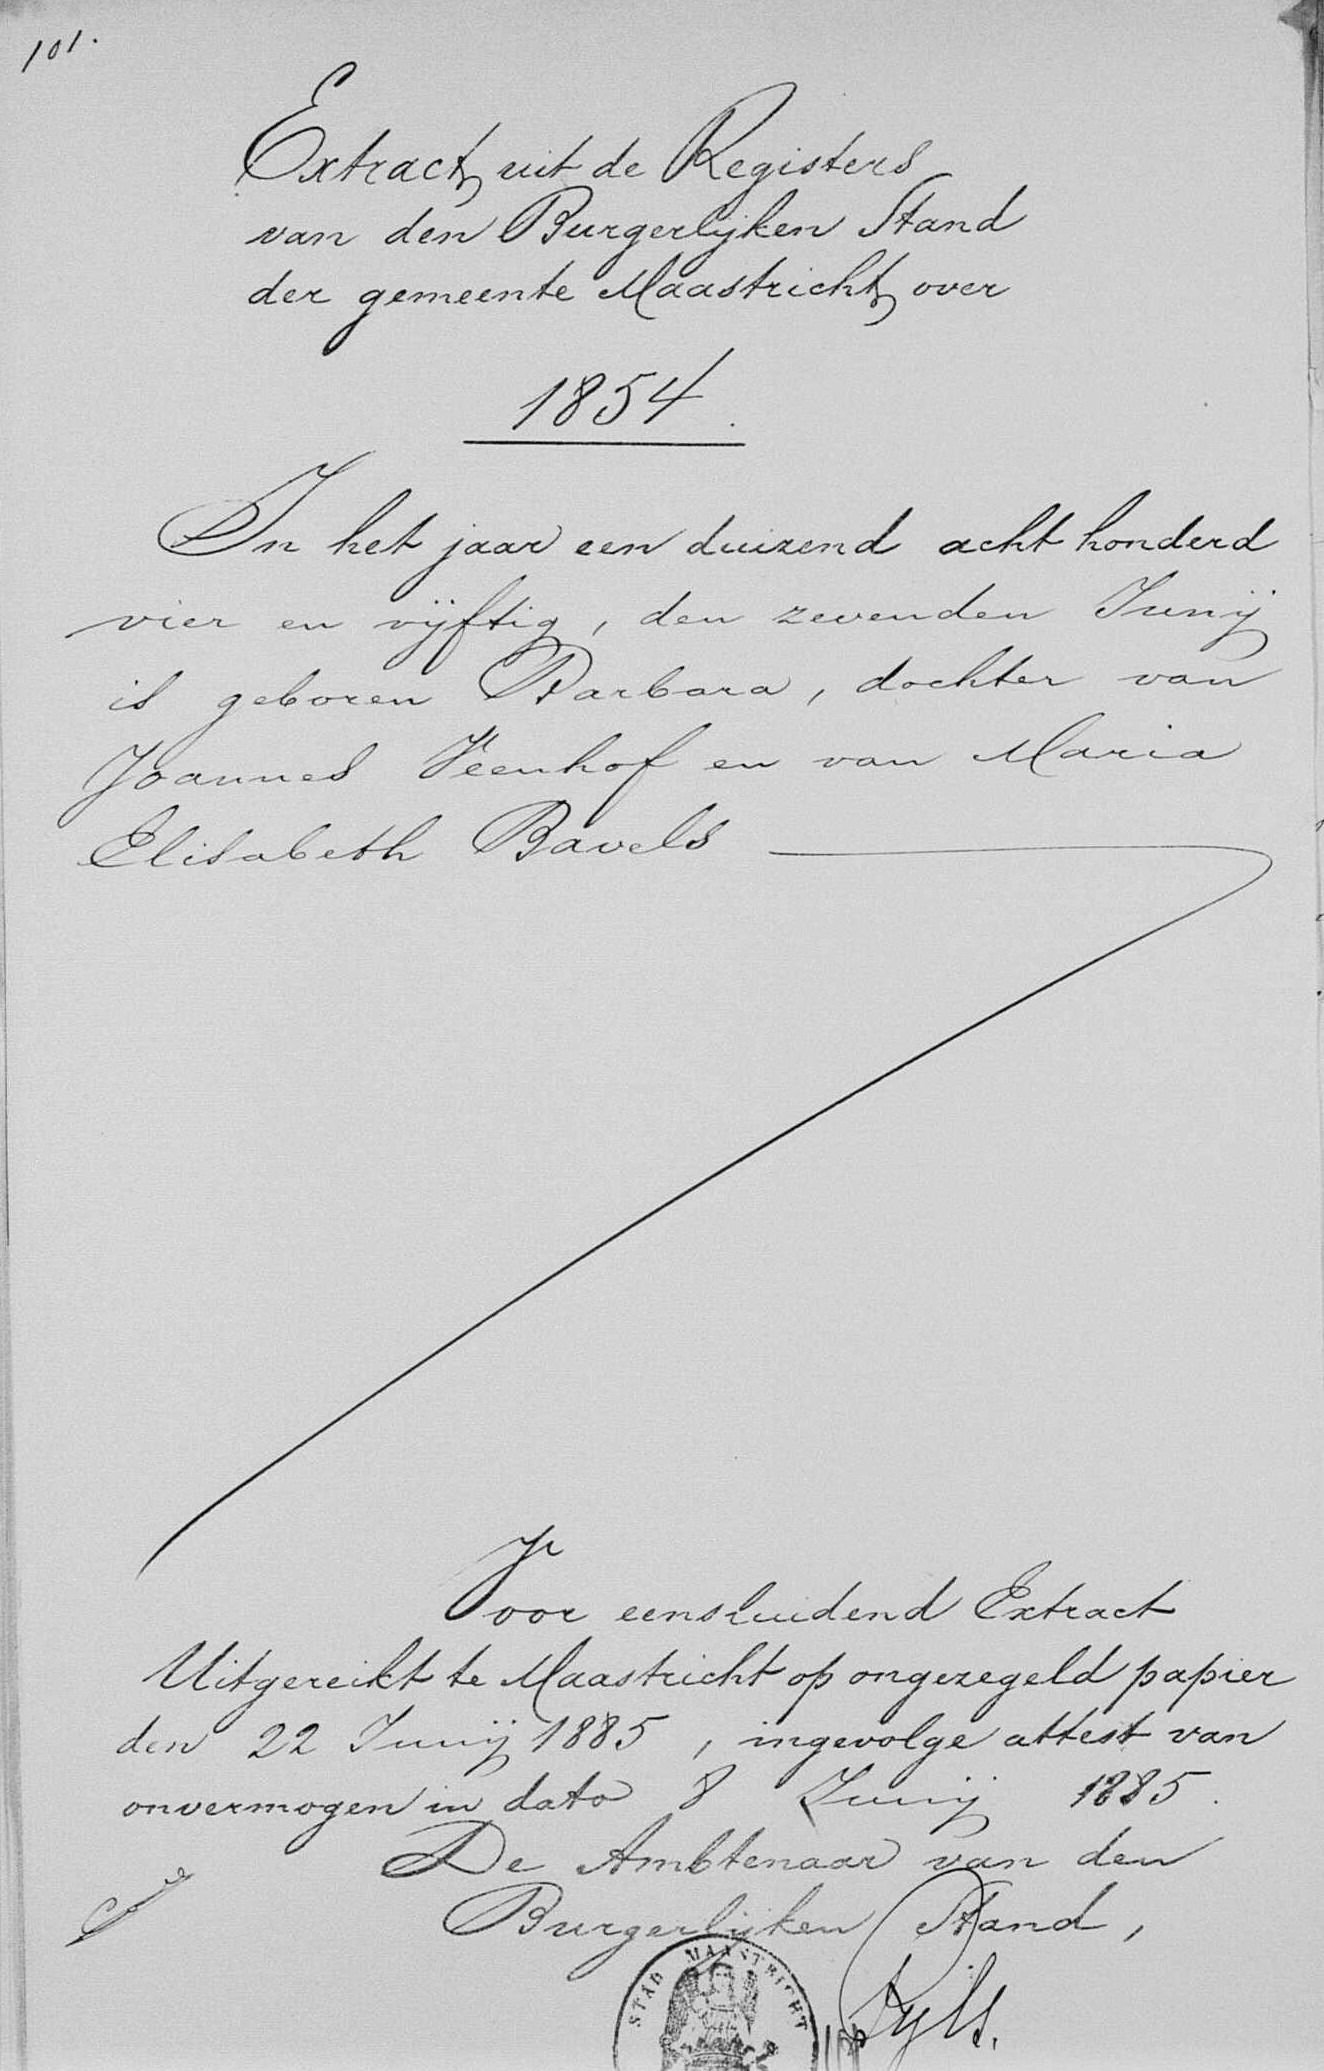 101.
Extract uit de Registers
van den Burgerlijken Stand
der gemeente Maastricht over
1854.
In het jaar een duizend acht honderd
vier en vijftig, den zevenden Junij
is geboren Barbara, dochter van
Joannes Veenhof en van Maria
Elisabeth Bavels
Voor eensluidend Extract
Uitgereikt te Maastricht op ongezegeld papier
den 22 Junij 1885, ingevolge attest van
onvermogen in dato 8 Junij 1885.
De Ambtenaar van den
Burgerlijken Stand,
STAD MAASTRICHT